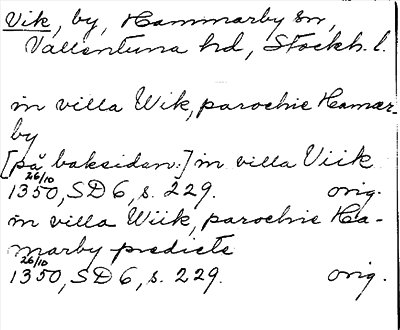 Vik, by, Hammarby sn,
Vallentuna hd, Stockh. l.
in villa Wik, parochie Hamar-
by
[på baksidan:] in villa Viik
26/10
1350, SD 6, s. 229. orig.
in villa Wiik, parochie Ha-
marby predicte
26/10
1350, SD 6, s. 229. orig.